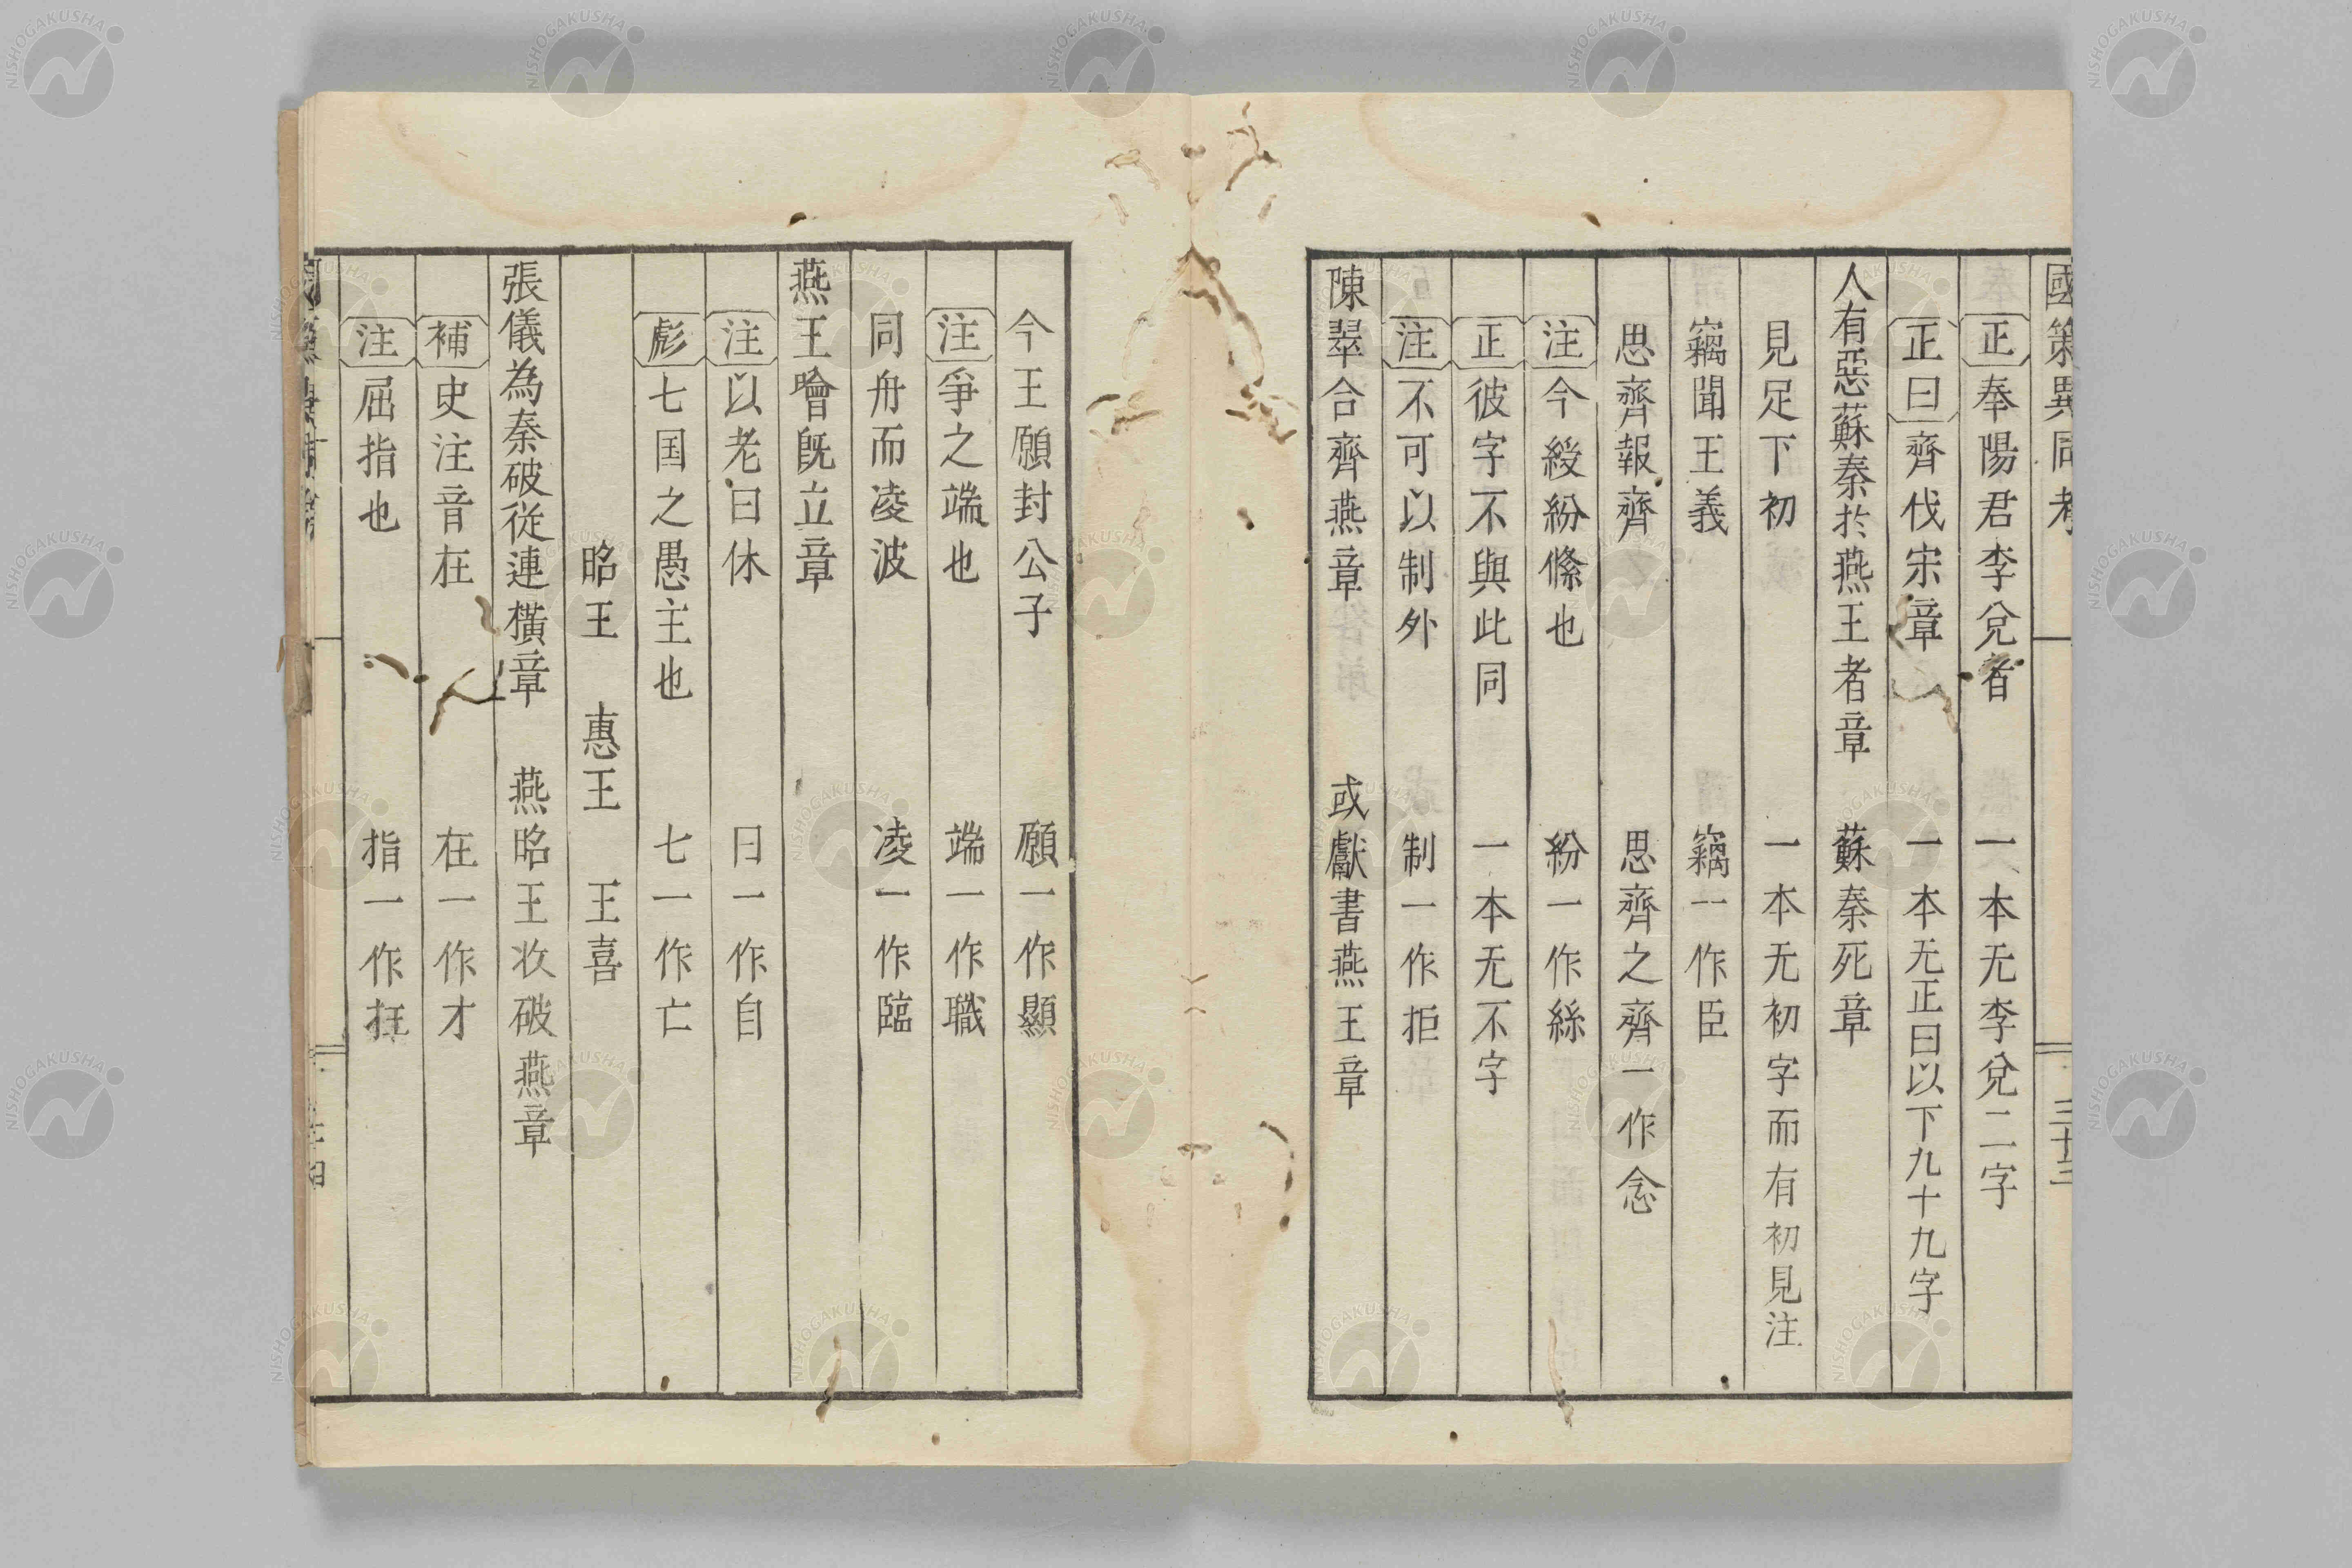 國策異同考 三十三
正 奉陽君李兌者 一本无李兌二字
正曰 齊伐宋章 一本无正曰以下九十九字
人有惡蘇秦於燕王者章 蘇秦死章
見足下初 一本无初字而有初見注
竊聞王義 竊一作臣
思齊報齊 思齊之齊一作念
注 今綬紛絛也 紛一作絲
正 彼字不與此同 一本无不字
注 不可以制外 制一作拒
陳翠合齊燕章 或獻書燕王章
今王願封公子 願一作顯
注 爭之端也 端一作職
同舟而凌波 凌一作臨
燕王噲既立章
注 以老曰休 曰一作自
彪 七国之愚主也 七一作亡
昭王 惠王 王喜
張儀為秦破從連橫章 燕昭王收破燕章
補 史注音在 在一作才
注 屈指也 指一作抂
NISHOGAKUSHA